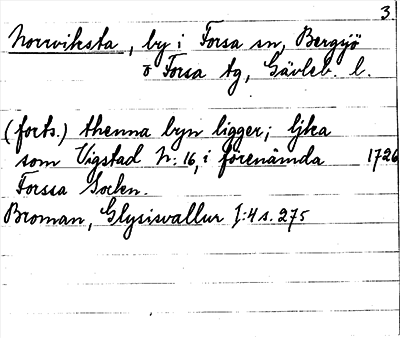 3.
Norrviksta, by i Forsa sn, Bergsjö
o Forsa tg, Gävleb. l.
(forts.) thenna byn ligger; ljka
som Vigstad N: 16, i förenämda 1726
Forssa Sochen.
Broman, Glysisvallur I:4 s. 275